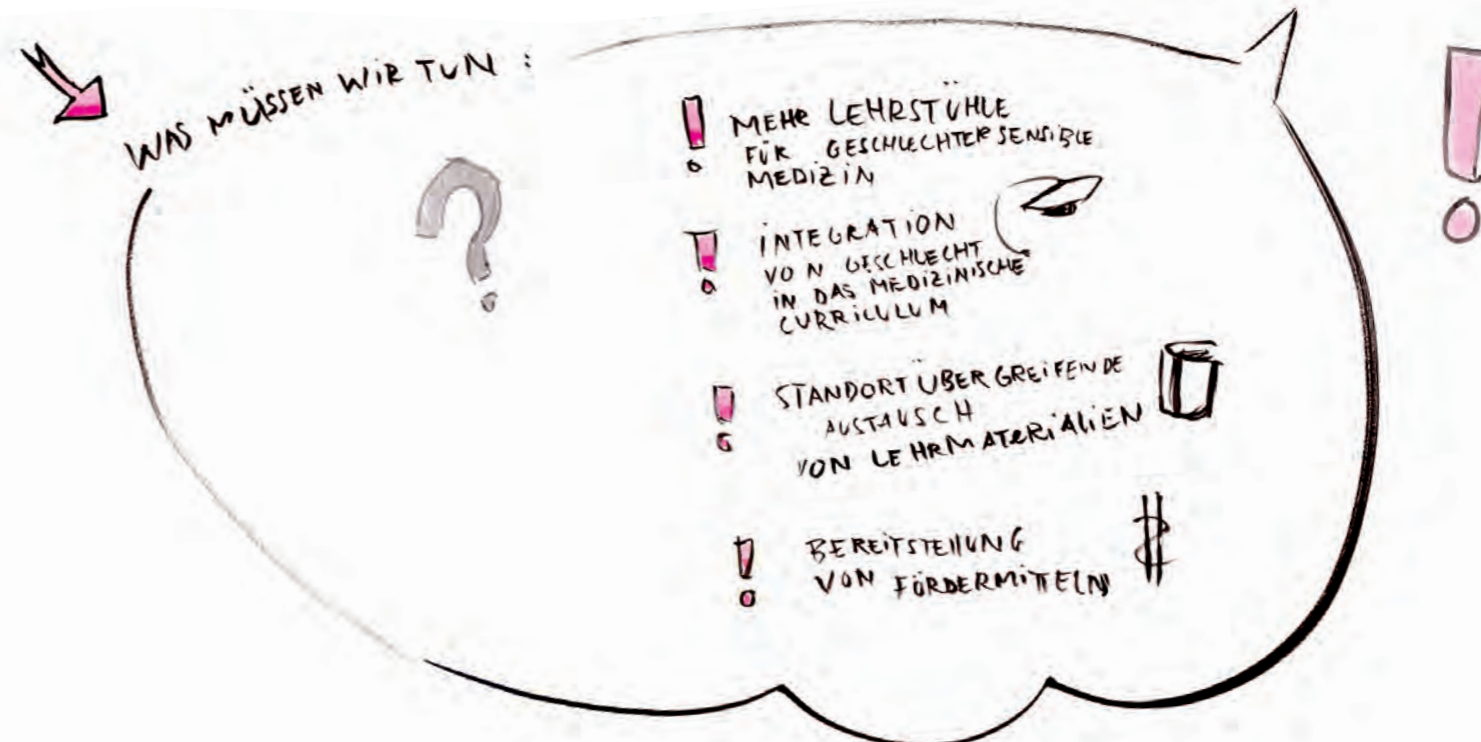 WAS MÜSSEN WIR TUN :
?
! MEHR LEHRSTÜHLE
FÜR GESCHLECHTERSENSIBLE
MEDIZIN
! INTEGRATION
VON GESCHLECHT
IN DAS MEDIZINISCHE
CURRICULUM
! STANDORTÜBERGREIFENDE
AUSTAUSCH
VON LEHRMATERIALIEN
! BEREITSTELLUNG
VON FÖRDERMITTELN $
!